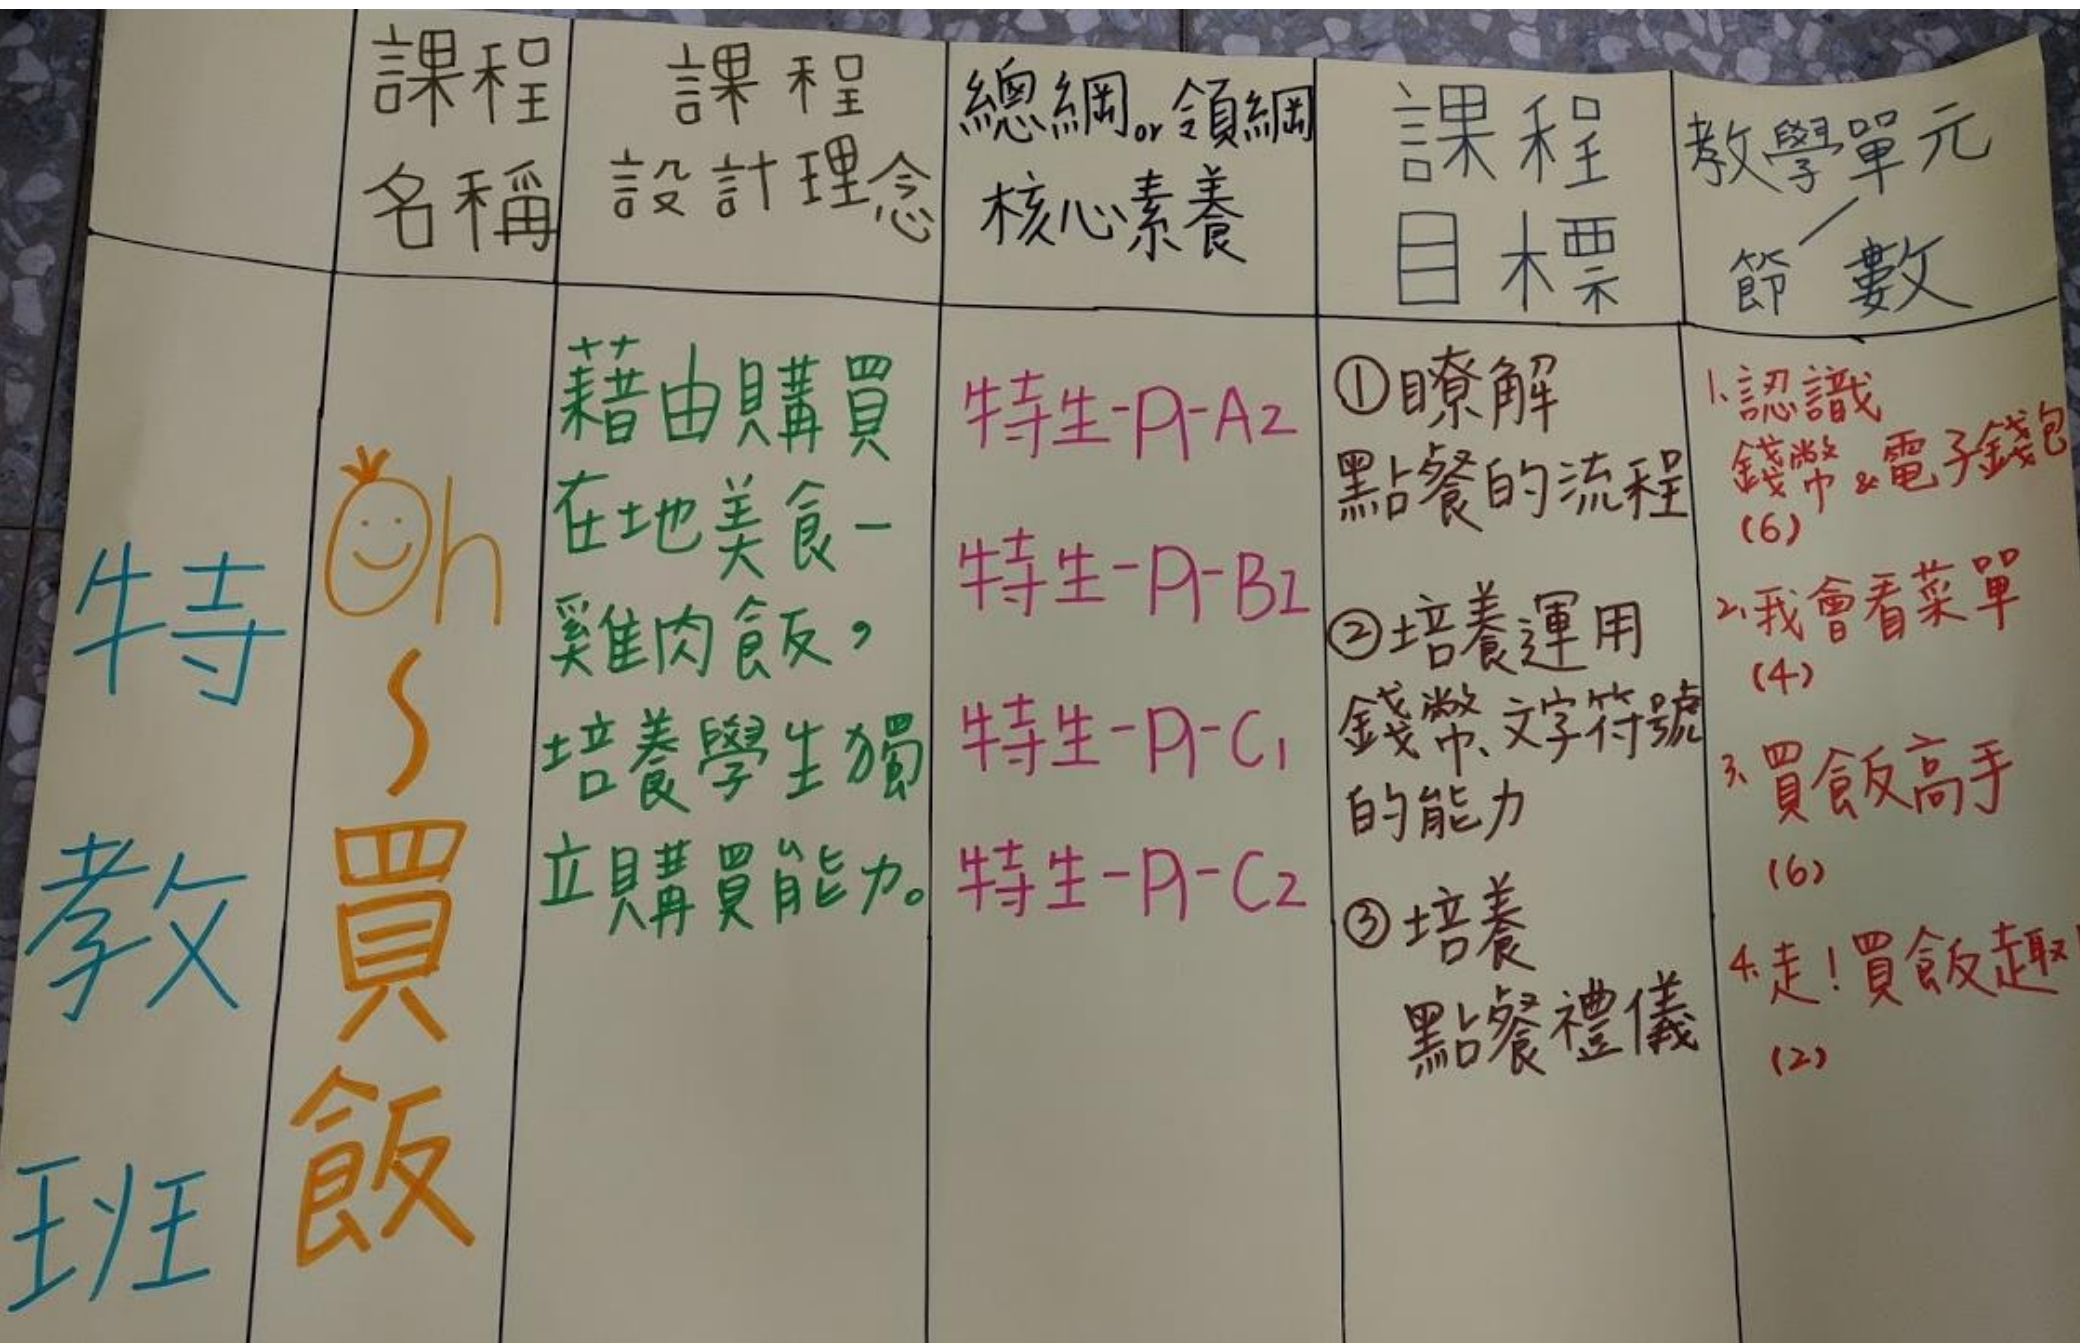 課程
名稱
課程
設計理念
總綱or領綱
核心素養
課程
目標
教學單元
/
節數
特
教
班
Oh
~
買
飯
藉由購買
在地美食-
雞肉飯,
培養學生獨
立購買能力。
特生-P-A2
特生-P-B1
特生-P-C1
特生-P-C2
①瞭解
點餐的流程
②培養運用
錢幣、文字符號
的能力
③培養
點餐禮儀
1、認識
錢幣&電子錢包
(6)
2、我會看菜單
(4)
3、買飯高手
(6)
4、走!買飯趣!
(2)